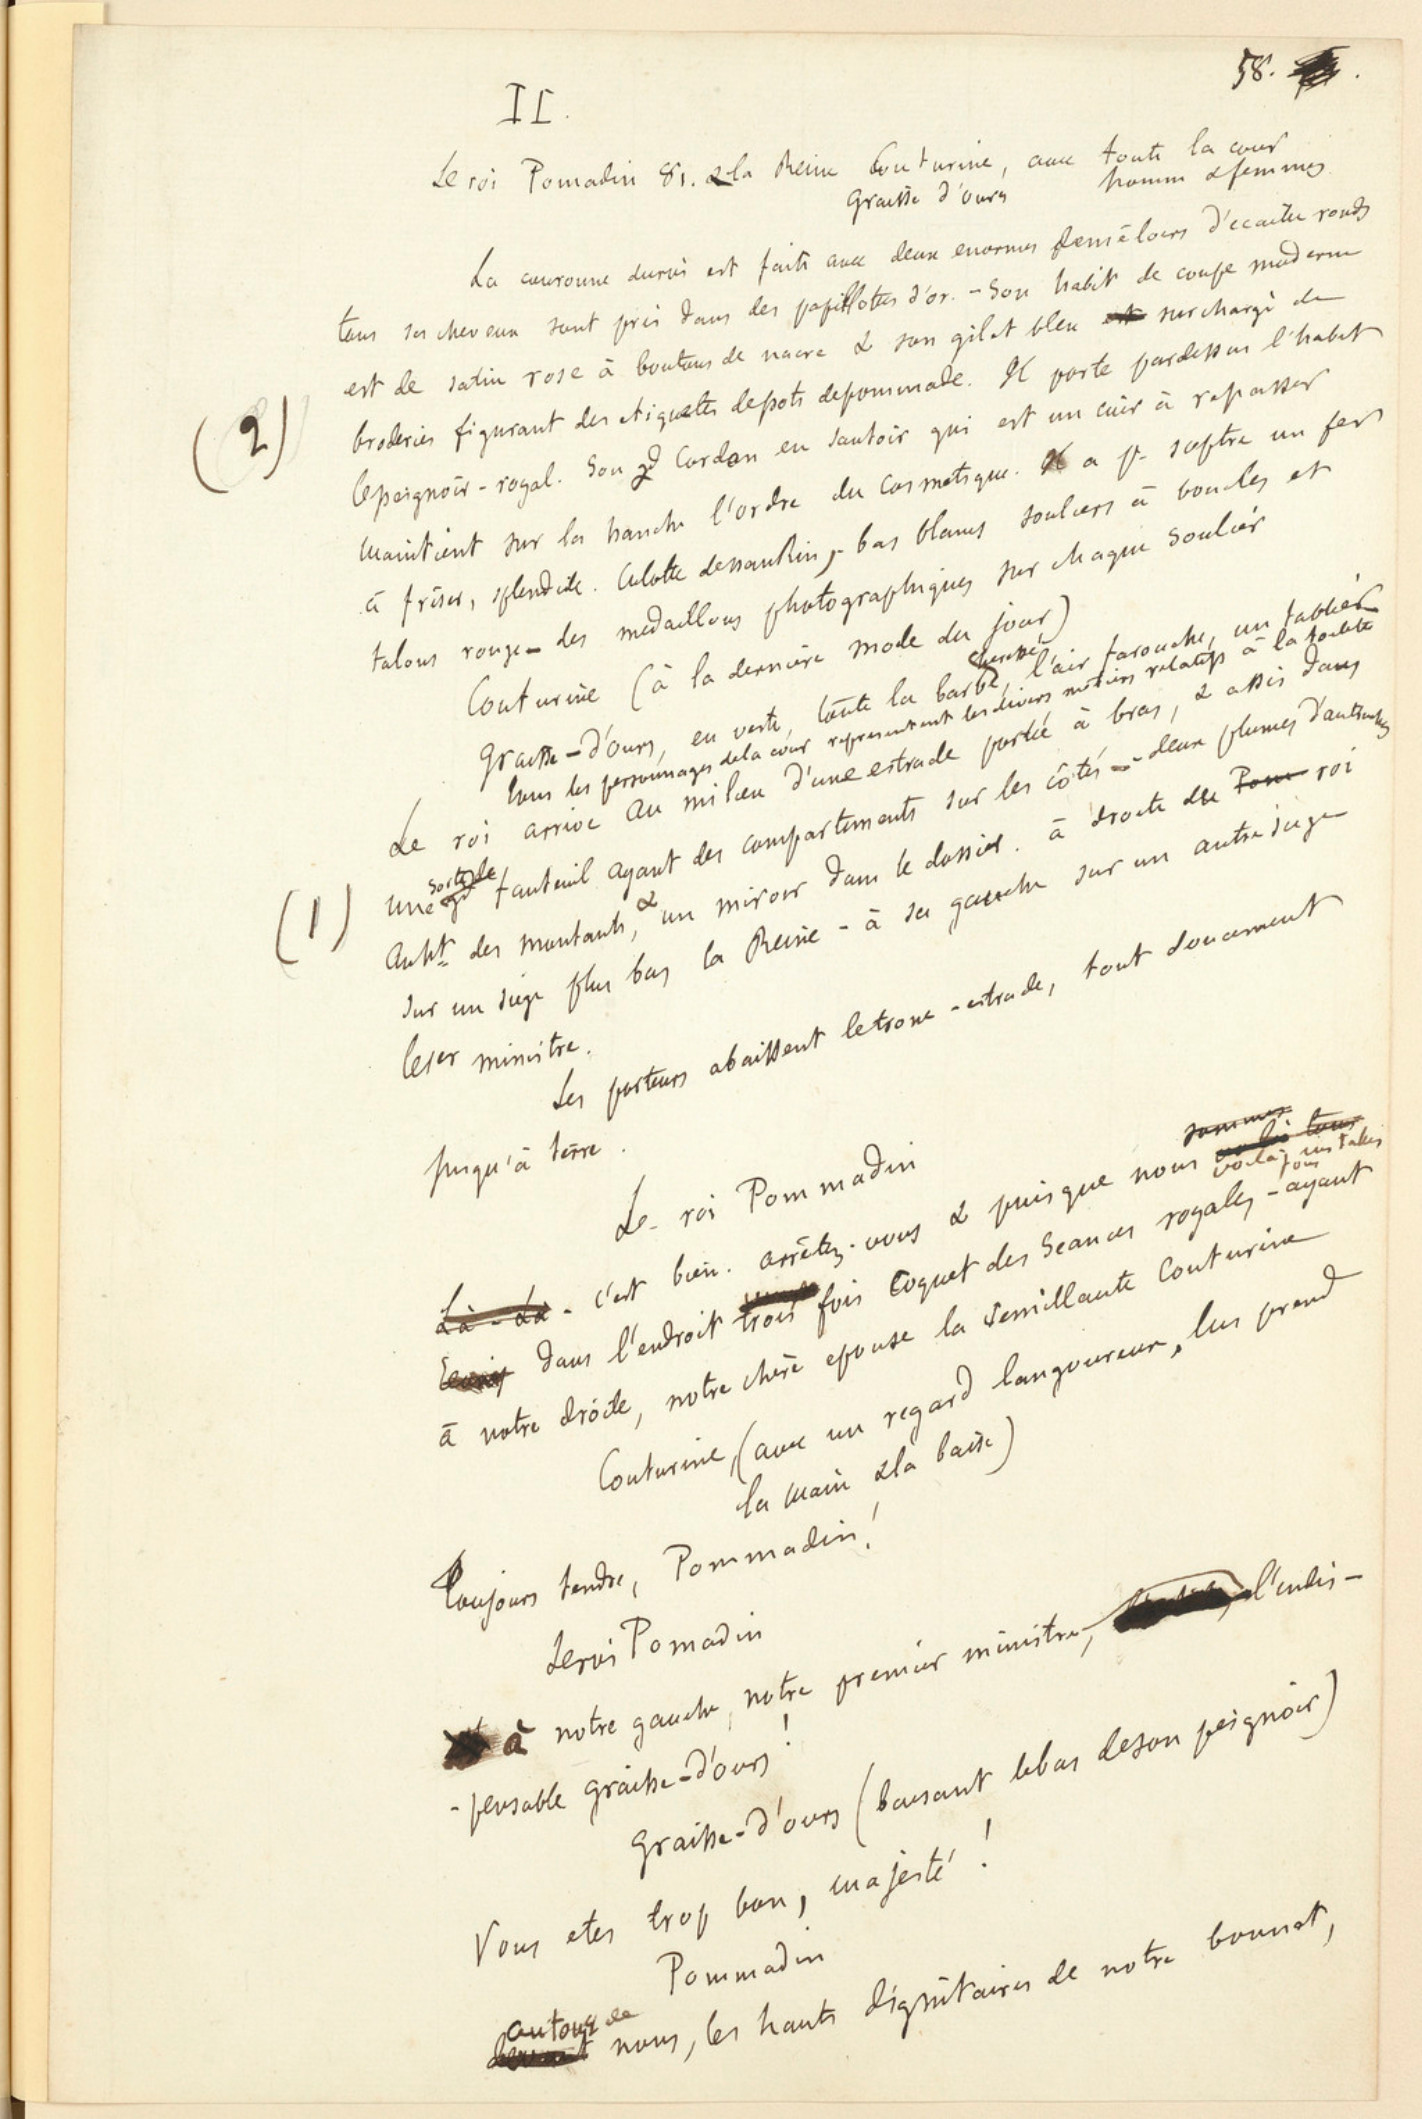 58.
II.
Le roi Pomadin &1. & la Reine Couturine, avec toute la cour
Graisse d'ours hommes & femmes
La couronne du roi est faite avec deux enormes demêloirs d'écaille ronds
tous ses cheveux sont pris dans des papillottes d'or. - Son habit de coupe moderne
est de satin rose à boutons de nacre & son gilet bleu est surchargé de
broderies figurant des etiquettes de pots de pommade. Il porte pardessus l'habit
(2)
le peignoir-royal. Son gd Cordon en sautoir qui est un cuir à repasser
maintient sur la hanche l'ordre du Cosmetique. Il a pr sceptre un fer
à friser, splendide. Culotte de nankin, bas blancs souliers à boucles et
talons rouge - des medaillons photographiques sur chaque soulier
Couturine (à la dernière mode du jour)
Graisse-d'ours, en veste, toute la barbe, l'air farouche, un tablier
tous les personnages de la cour representent les divers metiers relatifs à la toilette
Le roi arrive au milieu d'une estrade portée à bras, & assis dans
une sorte de gd fauteuil ayant des compartiments sur les côtés - deux plumes d'autruches
(1)
au ht des montants, & un miroir dans le dossier. à droite du Pom roi
sur un siège plus bas la Reine - à sa gauche sur un autre siège
le 1er ministre.
Les porteurs abaissent le trone-estrade, tout doucement
jusqu'à terre.
Le roi Pommadin
sommes
Là - Là - c'est bien. arrêtez-vous & puisque nous voilà tous
voilà, installés
tous
dans l'endroit trois fois coquet des Seances royales, - ayant
à notre droite, notre chère epouse la semillante Couturine
Couturine, (avec un regard langoureux, lui prend
la main & la baise)
Toujours tendre, Pommadin!
Le roi Pomadin
à notre gauche, notre premier ministre, l'indis-
-pensable Graisse-d'ours!
Graisse-d'ours (baisant le bas de son peignoir)
Vous etes trop bon, majesté!
Pommadin
autour de
devant nous, les hauts dignitaires de notre bonnet,